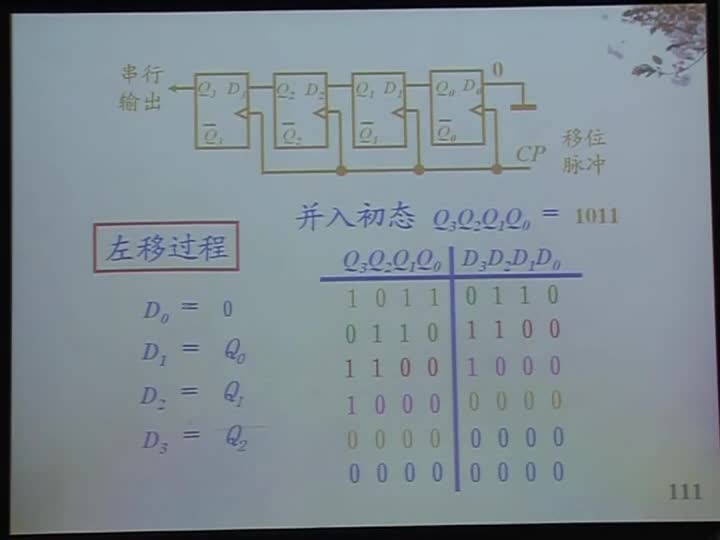 串行
输出
Q3 D3 Q2 D2 Q1 D1 Q0 D0 0
Q̅3 Q̅2 Q̅1 Q̅0
CP
移位
脉冲
并入初态 Q3Q2Q1Q0 = 1011
左移过程
D0 = 0
D1 = Q0
D2 = Q1
D3 = Q2
Q3Q2Q1Q0 D3D2D1D0
1 0 1 1 0 1 1 0
0 1 1 0 1 1 0 0
1 1 0 0 1 0 0 0
1 0 0 0 0 0 0 0
0 0 0 0 0 0 0 0
0 0 0 0 0 0 0 0
111